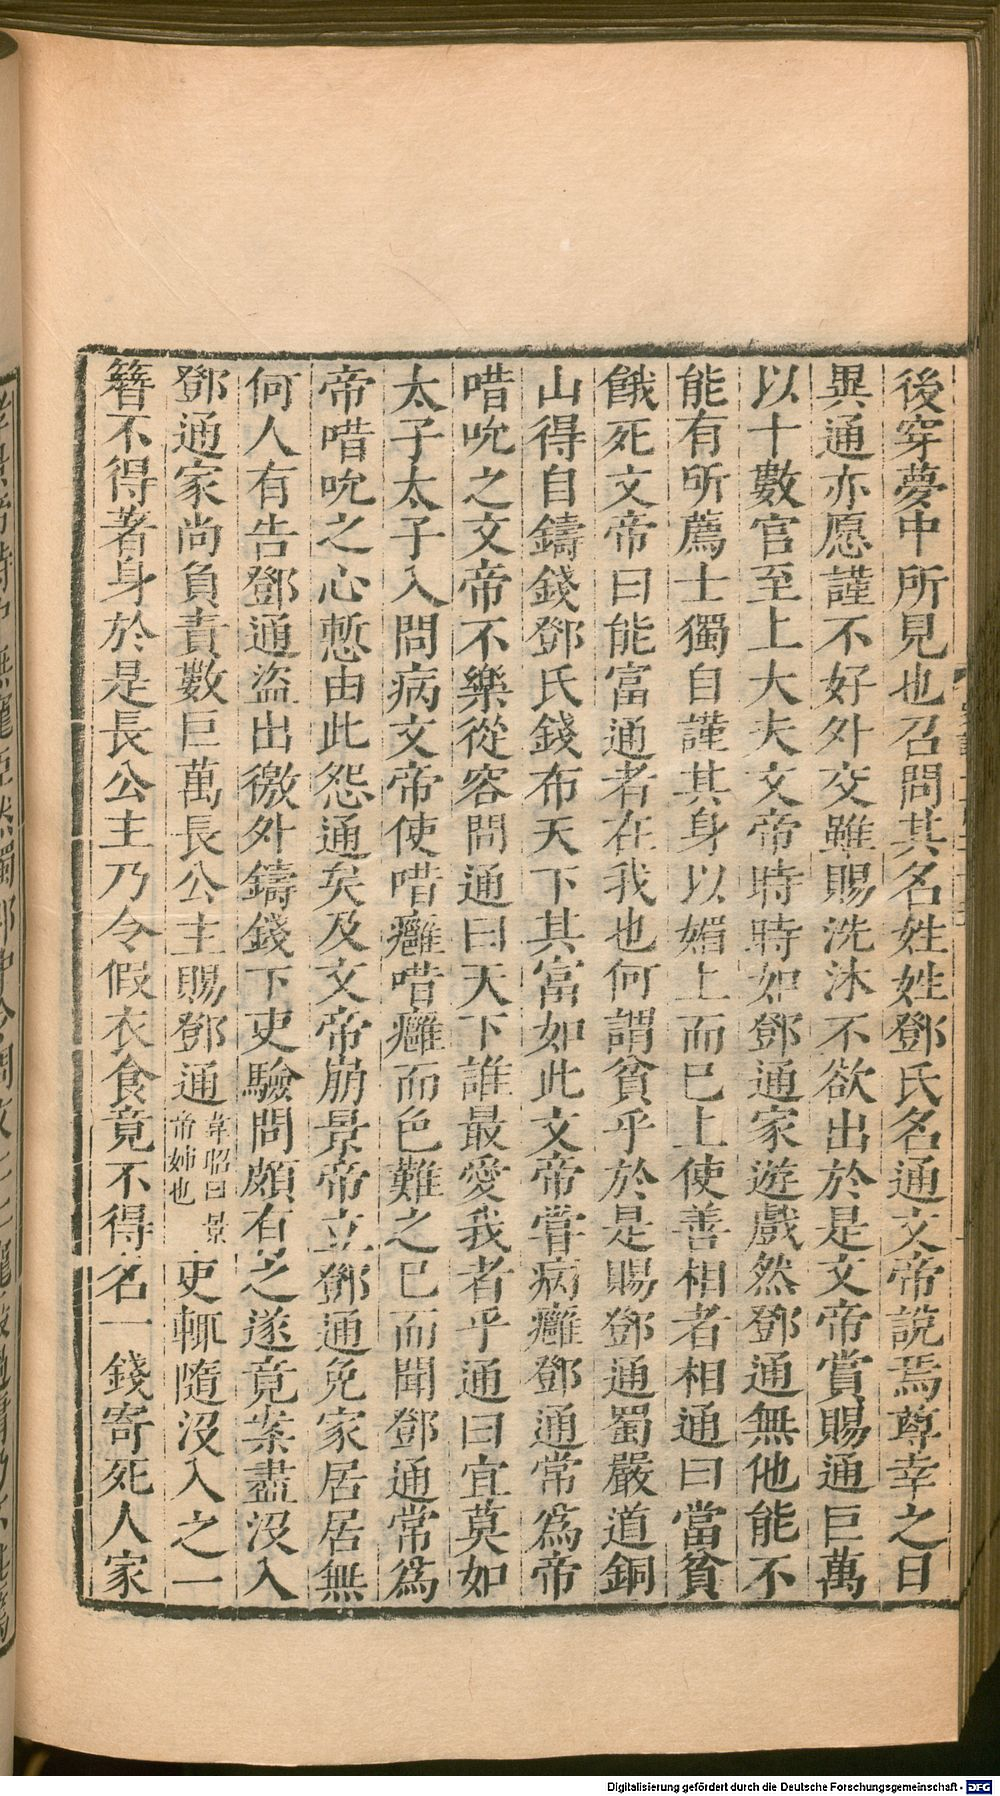 後穿夢中所見也召問其名姓姓鄧氏名通文帝說焉尊幸之日
異通亦愿謹不好外交雖賜洗沐不欲出於是文帝賞賜通巨萬
以十數官至上大夫文帝時時如鄧通家遊戲然鄧通無他能不
能有所薦士獨自謹其身以媚上而已上使善相者相通曰當貧
餓死文帝曰能富通者在我也何謂貧乎於是賜鄧通蜀嚴道銅
山得自鑄錢鄧氏錢布天下其富如此文帝嘗病癰鄧通常爲帝
唶吮之文帝不樂從容問通曰天下誰最愛我者乎通曰宜莫如
太子太子入問病文帝使唶癰唶癰而色難之已而聞鄧通常爲
帝唶吮之心慙由此怨通矣及文帝崩景帝立鄧通免家居居無
何人有告鄧通盜出徼外鑄錢下吏驗問頗有之遂竟案盡没入
鄧通家尚負責數巨萬長公主賜鄧通韋昭曰景帝姉也吏輒隨没入之一
簪不得著身於是長公主乃令假衣食竟不得名一錢寄死人家
Digitalisierung gefördert durch die Deutsche Forschungsgemeinschaft - DFG